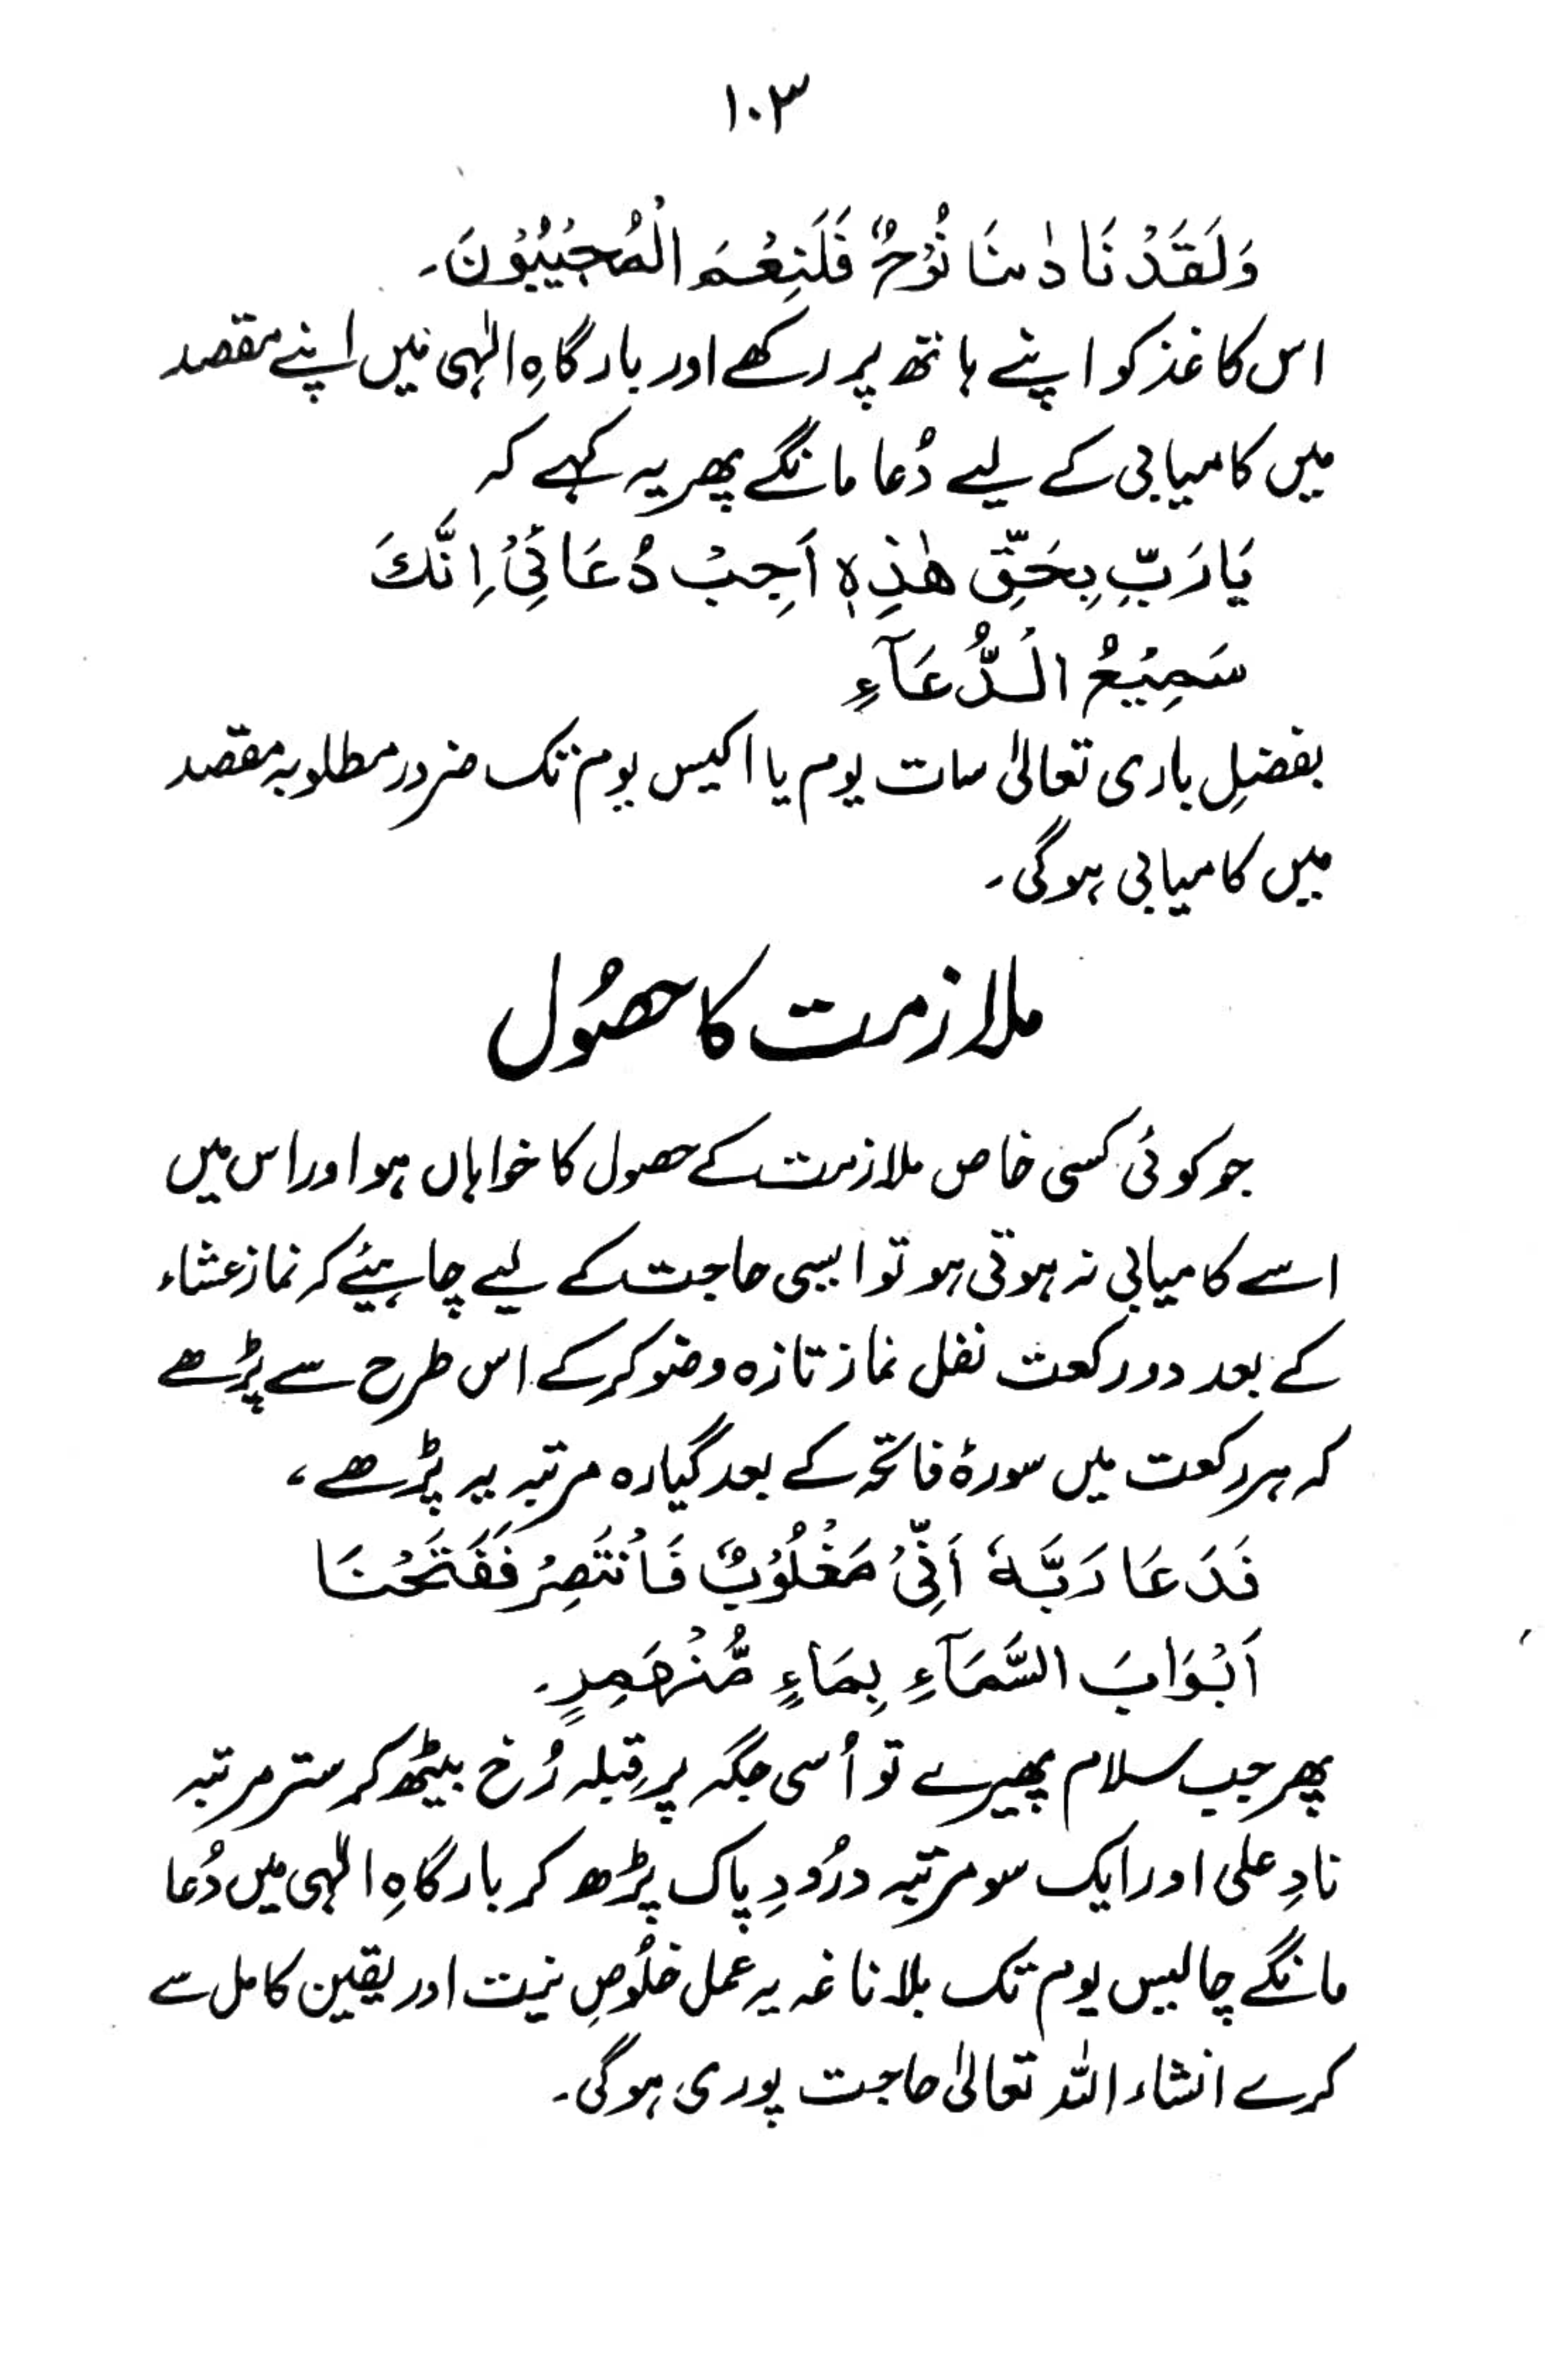 ۱۰۳
وَلَقَدْ نَادٰىنَا نُوْحٌ فَلَنِعْمَ الْمُجِيْبُوْنَ۔
اس کاغذ کو اپنے ہاتھ پر رکھے اور بارگاہِ الٰہی میں اپنے مقصد
میں کامیابی کے لیے دُعا مانگے پھر یہ کہے کہ
يَارَبِّ بِحَقِّ هٰذِهٖ اَجِبْ دُعَائِیْ اِنَّكَ
سَمِيْعُ الدُّعَآءِ
بفضلِ باری تعالیٰ سات یوم یا اکیس یوم تک ضرور مطلوبہ مقصد
میں کامیابی ہوگی۔
ملازمت کا حصُول
جو کوئی کسی خاص ملازمت کے حصول کا خواہاں ہو اور اس میں
اسے کامیابی نہ ہوتی ہو تو ایسی حاجت کے لیے چاہئیے کہ نماز عشاء
کے بعد دو رکعت نفل نماز تازہ وضو کرکے اس طرح سے پڑھے
کہ ہر رکعت میں سورۂ فاتحہ کے بعد گیارہ مرتبہ یہ پڑھے،
فَدَعَا رَبَّهٗ اَنِّیْ مَغْلُوْبٌ فَانْتَصِرْ فَفَتَحْنَا
اَبْوَابَ السَّمَآءِ بِمَاءٍ مُّنْهَمِرٍ۔
پھر جب سلام پھیرے تو اُسی جگہ پر قِبلہ رُخ بیٹھ کر ستر مرتبہ
نادِ علی اور ایک سو مرتبہ درُودِ پاک پڑھ کر بارگاہِ الٰہی میں دُعا
مانگے چالیس یوم تک بلا ناغہ یہ عمل خلُوصِ نیت اور یقین کامل سے
کرے انشاء اللہ تعالیٰ حاجت پوری ہوگی۔